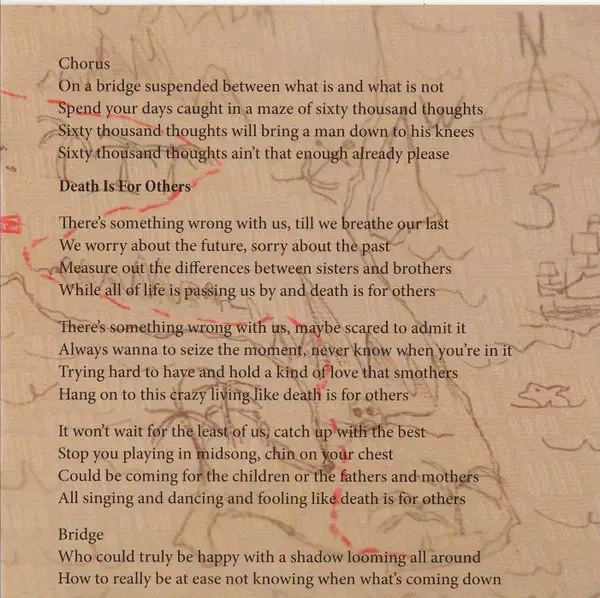 Chorus
On a bridge suspended between what is and what is not
Spend your days caught in a maze of sixty thousand thoughts
Sixty thousand thoughts will bring a man down to his knees
Sixty thousand thoughts ain't that enough already please
Death Is For Others
There's something wrong with us, till we breathe our last
We worry about the future, sorry about the past
Measure out the differences between sisters and brothers
While all of life is passing us by and death is for others
There's something wrong with us, maybe scared to admit it
Always wanna to seize the moment, never know when you're in it
Trying hard to have and hold a kind of love that smothers
Hang on to this crazy living like death is for others
It won't wait for the least of us, catch up with the best
Stop you playing in midsong, chin on your chest
Could be coming for the children or the fathers and mothers
All singing and dancing and fooling like death is for others
Bridge
Who could truly be happy with a shadow looming all around
How to really be at ease not knowing when what's coming down
N
S